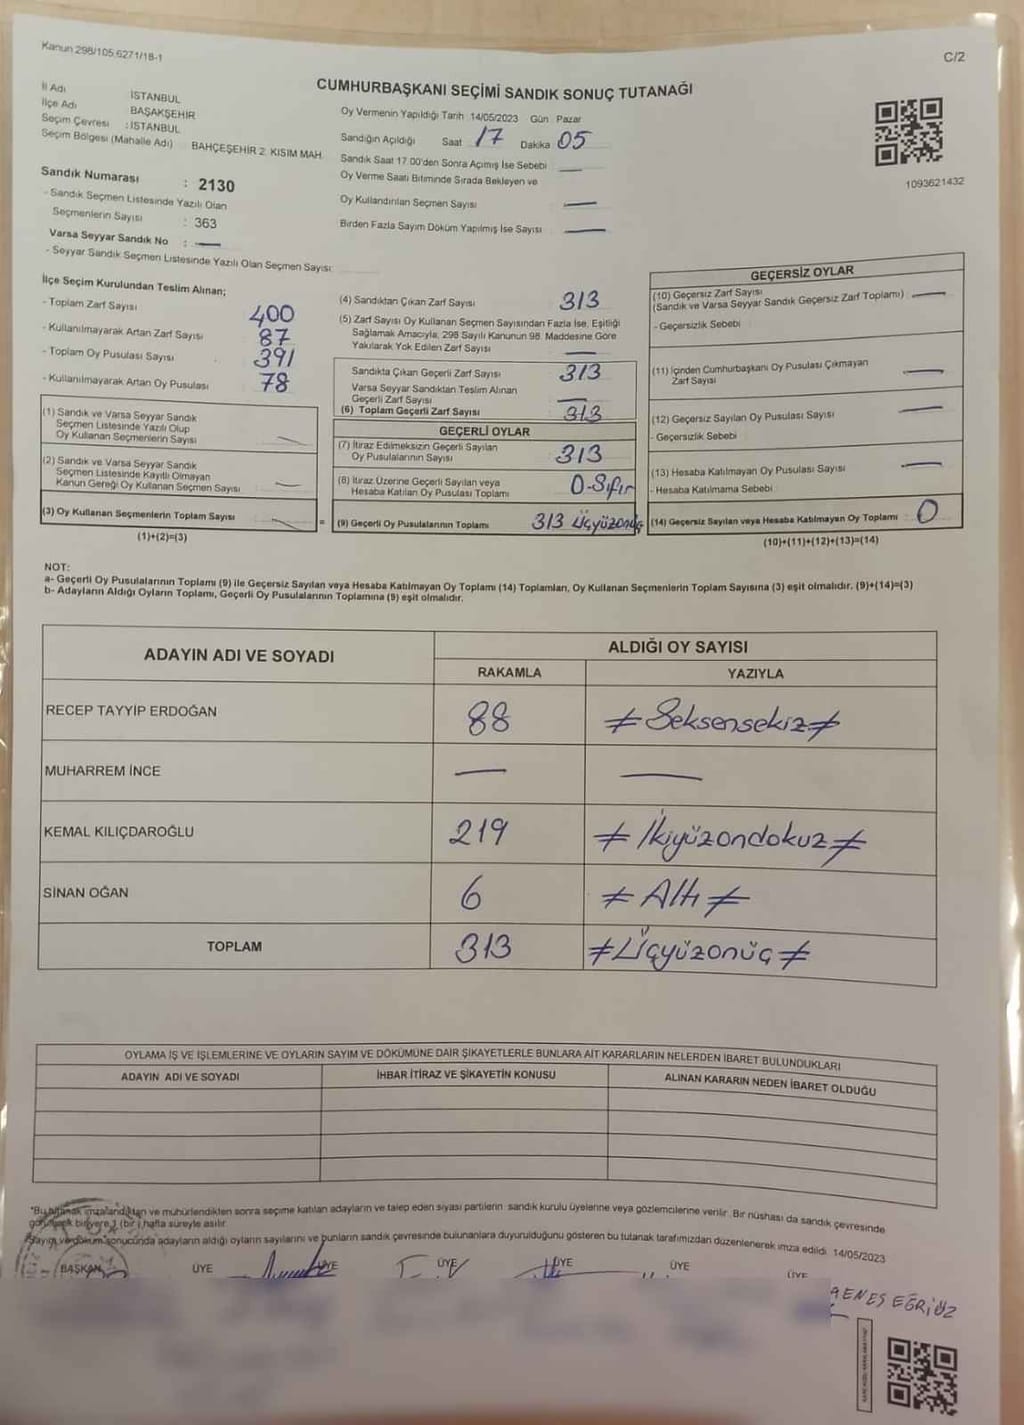 Kanun 298/105,6271/18-1
C/2
CUMHURBAŞKANI SEÇİMİ SANDIK SONUÇ TUTANAĞI
İl Adı İSTANBUL
İlçe Adı BAŞAKŞEHİR
Seçim Çevresi : İSTANBUL
Seçim Bölgesi (Mahalle Adı) BAHÇEŞEHİR 2. KISIM MAH.
Sandık Numarası : 2130
- Sandık Seçmen Listesinde Yazılı Olan
Seçmenlerin Sayısı : 363
Varsa Seyyar Sandık No : —
- Seyyar Sandık Seçmen Listesinde Yazılı Olan Seçmen Sayısı:
Oy Vermenin Yapıldığı Tarih 14/05/2023 Gün Pazar
Sandığın Açıldığı Saat 17 Dakika 05
Sandık Saat 17.00'den Sonra Açımış İse Sebebi —
Oy Verme Saati Bitiminde Sırada Bekleyen ve
Oy Kullandırılan Seçmen Sayısı —
Birden Fazla Sayım Döküm Yapılmış İse Sayısı —
1093621432
İlçe Seçim Kurulundan Teslim Alınan;
- Toplam Zarf Sayısı 400
- Kullanılmayarak Artan Zarf Sayısı 87
- Toplam Oy Pusulası Sayısı 391
- Kullanılmayarak Artan Oy Pusulası 78
(1) Sandık ve Varsa Seyyar Sandık
Seçmen Listesinde Yazılı Olup
Oy Kullanan Seçmenlerin Sayısı —
(2) Sandık ve Varsa Seyyar Sandık
Seçmen Listesinde Kayıtlı Olmayan
Kanun Gereği Oy Kullanan Seçmen Sayısı —
(3) Oy Kullanan Seçmenlerin Toplam Sayısı —
(1)+(2)=(3)
=
(4) Sandıktan Çıkan Zarf Sayısı 313
(5) Zarf Sayısı Oy Kullanan Seçmen Sayısından Fazla İse, Eşitliği
Sağlamak Amacıyla, 298 Sayılı Kanunun 98. Maddesine Göre
Yakılarak Yok Edilen Zarf Sayısı —
Sandıkta Çıkan Geçerli Zarf Sayısı 313
Varsa Seyyar Sandıktan Teslim Alınan
Geçerli Zarf Sayısı —
(6) Toplam Geçerli Zarf Sayısı 313
GEÇERLİ OYLAR
(7) İtiraz Edilmeksizin Geçerli Sayılan
Oy Pusulalarının Sayısı 313
(8) İtiraz Üzerine Geçerli Sayılan veya
Hesaba Katılan Oy Pusulası Toplamı 0-Sıfır
(9) Geçerli Oy Pusulalarının Toplamı 313 Üçyüzonüç
GEÇERSİZ OYLAR
(10) Geçersiz Zarf Sayısı
(Sandık ve Varsa Seyyar Sandık Geçersiz Zarf Toplamı) —
- Geçersizlik Sebebi
(11) İçinden Cumhurbaşkanı Oy Pusulası Çıkmayan
Zarf Sayısı —
(12) Geçersiz Sayılan Oy Pusulası Sayısı —
- Geçersizlik Sebebi
(13) Hesaba Katılmayan Oy Pusulası Sayısı —
- Hesaba Katılmama Sebebi
(14) Geçersiz Sayılan veya Hesaba Katılmayan Oy Toplamı : 0
(10)+(11)+(12)+(13)=(14)
NOT:
a- Geçerli Oy Pusulalarının Toplamı (9) ile Geçersiz Sayılan veya Hesaba Katılmayan Oy Toplamı (14) Toplamları, Oy Kullanan Seçmenlerin Toplam Sayısına (3) eşit olmalıdır. (9)+(14)=(3)
b- Adayların Aldığı Oyların Toplamı, Geçerli Oy Pusulalarının Toplamına (9) eşit olmalıdır.
ADAYIN ADI VE SOYADI
ALDIĞI OY SAYISI
RAKAMLA YAZIYLA
RECEP TAYYİP ERDOĞAN 88 ≠ Seksensekiz ≠
MUHARREM İNCE — —
KEMAL KILIÇDAROĞLU 219 ≠ İkiyüzondokuz ≠
SİNAN OĞAN 6 ≠ Altı ≠
TOPLAM 313 ≠ Üçyüzonüç ≠
OYLAMA İŞ VE İŞLEMLERİNE VE OYLARIN SAYIM VE DÖKÜMÜNE DAİR ŞİKAYETLERLE BUNLARA AİT KARARLARIN NELERDEN İBARET BULUNDUKLARI
ADAYIN ADI VE SOYADI İHBAR İTİRAZ VE ŞİKAYETİN KONUSU ALINAN KARARIN NEDEN İBARET OLDUĞU
"Bu tutanak imzalandıktan ve mühürlendikten sonra seçime katılan adayların ve talep eden siyasi partilerin sandık kurulu üyelerine veya gözlemcilerine verilir. Bir nüshası da sandık çevresinde
görülecek bir yere 1 (bir) hafta süreyle asılır.
Sayım ve döküm sonucunda adayların aldığı oyların sayılarını ve bunların sandık çevresinde bulunanlara duyurulduğunu gösteren bu tutanak tarafımızdan düzenlenerek imza edildi. 14/05/2023
BAŞKAN ÜYE ÜYE ÜYE ÜYE ÜYE ÜYE
ENES EĞRİÖZ